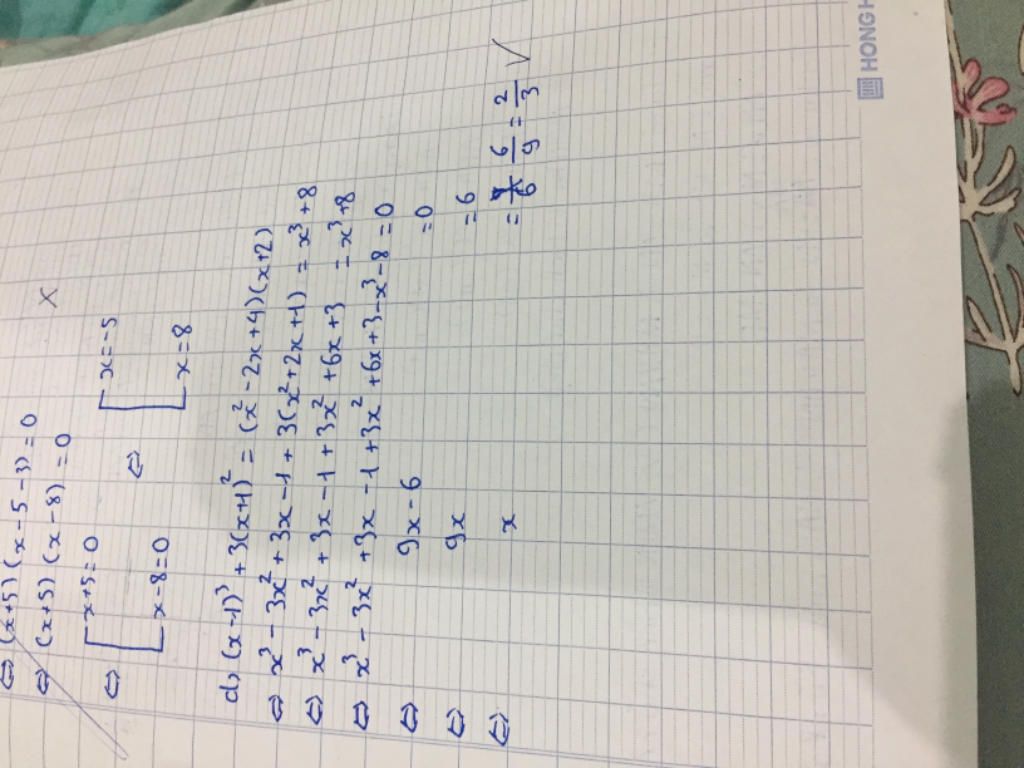 ⇔ (x+5)(x-5-3) = 0
⇔ (x+5)(x-8) = 0
⇔ [ x+5=0 ⇔ [ x=-5 X
[ x-8=0 [ x=8
d, (x-1)³ + 3(x+1)² = (x²-2x+4)(x+2)
⇔ x³ - 3x² + 3x - 1 + 3(x²+2x+1) = x³+8
⇔ x³ - 3x² + 3x - 1 + 3x² + 6x + 3 = x³+8
⇔ x³ - 3x² + 3x - 1 + 3x² + 6x + 3 - x³ - 8 = 0
⇔ 9x - 6 = 0
⇔ 9x = 6
⇔ x = 6/9 = 2/3 V
HONG H